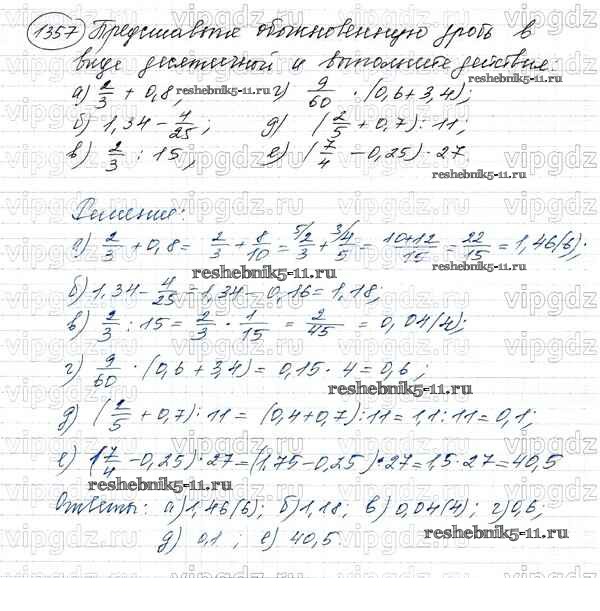 1357 Представьте обыкновенную дробь в
виде десятичной и выполните действия:
а) 2/3 + 0,8; reshebnik5-11.ru г) 9/60 · (0,6+3,4);
б) 1,34 - 4/25; д) (2/5 + 0,7) : 11;
в) 2/3 : 15; е) (7/4 - 0,25) · 27
reshebnik5-11.ru
Решение:
а) 2/3 + 0,8 = 2/3 + 8/10 = 5/ 2/3 + 3/ 4/5 = 10+12/15 = 22/15 = 1,46(6);
reshebnik5-11.ru
б) 1,34 - 4/25 = 1,34 - 0,16 = 1,18;
в) 2/3 : 15 = 2/3 · 1/15 = 2/45 = 0,04(4);
г) 9/60 · (0,6 + 3,4) = 0,15 · 4 = 0,6;
reshebnik5-11.ru
д) (2/5 + 0,7) : 11 = (0,4+0,7) : 11 = 1,1 : 11 = 0,1;
е) (7/4 - 0,25) · 27 = (1,75 - 0,25) · 27 = 1,5 · 27 = 40,5
reshebnik5-11.ru
Ответы: а) 1,46(6); б) 1,18; в) 0,04(4); г) 0,6;
reshebnik5-11.ru
д) 0,1; е) 40,5.